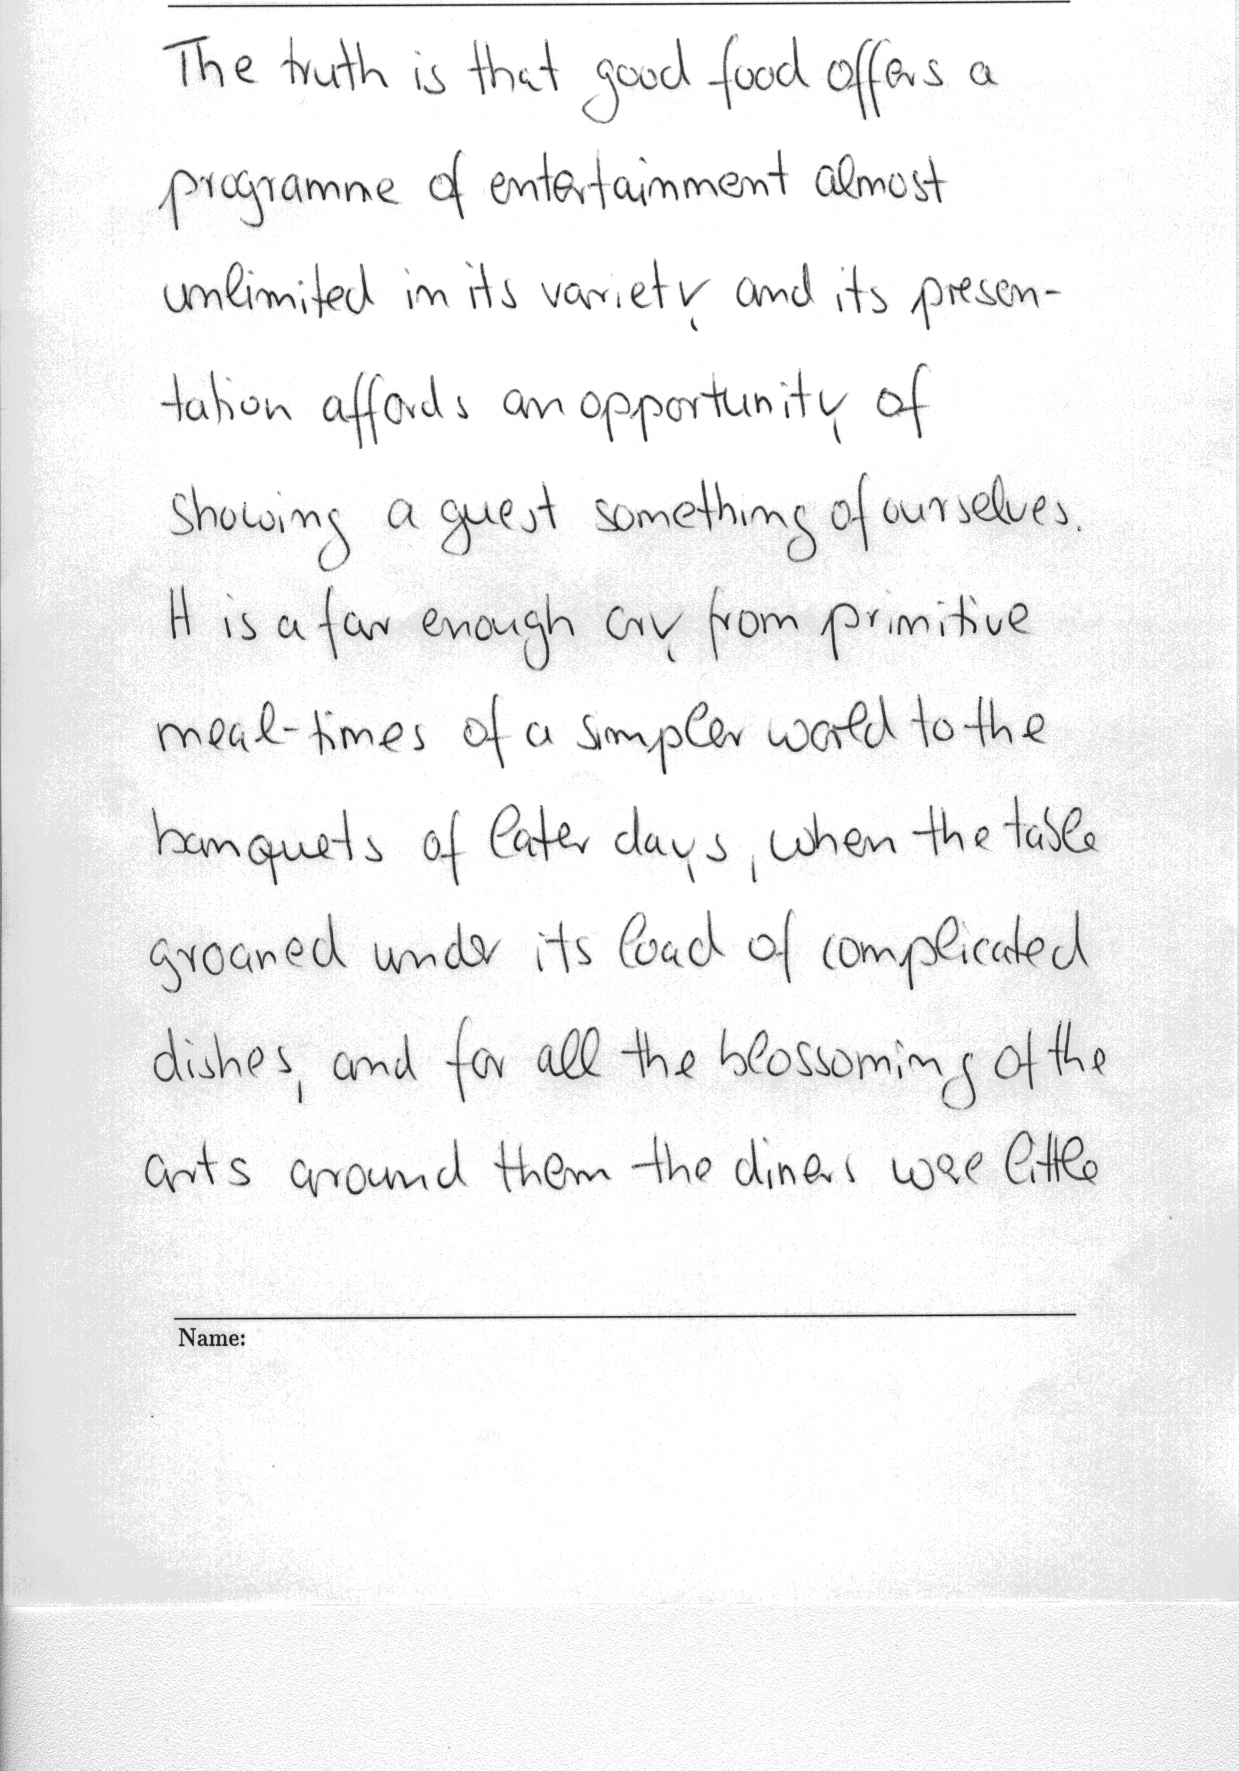 The truth is that good food offers a
programme of entertainment almost
unlimited in its variety and its presen-
tation affords an opportunity of
showing a guest something of ourselves.
It is a far enough cry from primitive
meal-times of a simpler world to the
banquets of later days, when the table
groaned under its load of complicated
dishes, and for all the blossoming of the
arts around them the diners were little
Name: